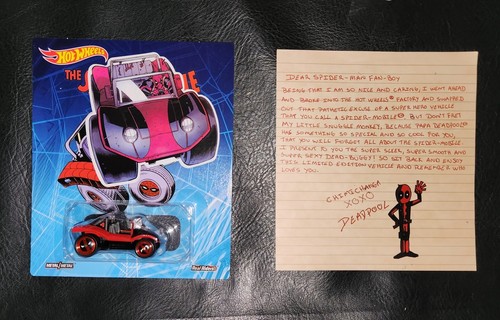 HOT WHEELS
THE
METAL/METAL
Real Riders
DEAR SPIDER-MAN FAN-BOY
BEING THAT I AM SO NICE AND CARING, I WENT AHEAD
AND BROKE INTO THE HOT WHEELS® FACTORY AND SWAPPED
OUT THAT PATHETIC EXCUSE OF A SUPER HERO VEHICLE
THAT YOU CALL A SPIDER-MOBILE®. BUT DON'T FRET
MY LITTLE SNUGGLE MONKEY, BECAUSE PAPA DEADPOOL®
HAS SOMETHING SO SPECIAL AND SO COOL FOR YOU,
THAT YOU'LL FORGET ALL ABOUT THE SPIDER-MOBILE.
I PRESENT TO YOU THE SUPER SLEEK, SUPER SMOOTH AND
SUPER SEXY DEAD-BUGGY! SO SIT BACK AND ENJOY
THIS LIMITED EDITION VEHICLE AND REMEMBER WHO
LOVES YOU.
CHIMICHANGA
XOXO
DEADPOOL